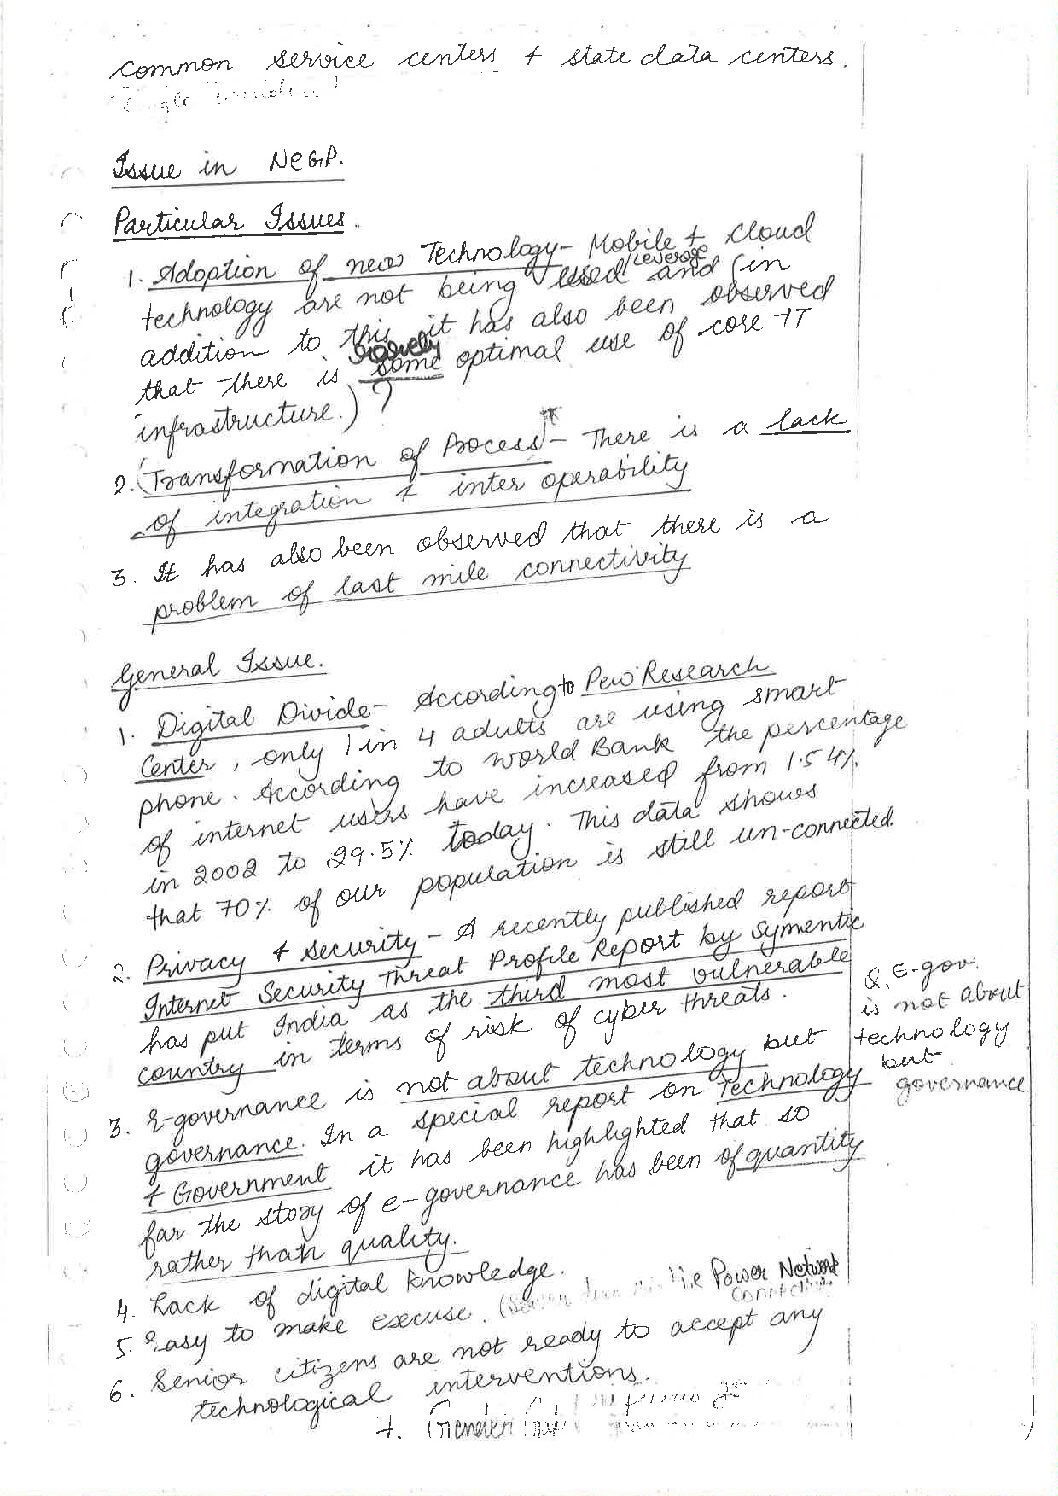 common service centers + state data centers.
Issue in NeGP.
Particular Issues.
1. Adoption of new Technology - Mobile + Cloud
technology are not being used / Leverage and (in
addition to this it has also been observed
that there is some optimal use of core IT
infrastructure.) ?
2. (Transformation of Process) - There is a lack
of integration & inter operability
3. It has also been observed that there is a
problem of last mile connectivity
General Issue.
1. Digital Divide - According to Pew Research
Center, only 1 in 4 adults are using smart
phone. According to world Bank the percentage
of internet users have increased from 1.54%
in 2002 to 29.5% today. This data shows
that 70% of our population is still un-connected.
2. Privacy & Security - A recently published report
Internet Security Threat Profile Report by Symentic
has put India as the third most vulnerable
country in terms of risk of cyber threats.
3. E-governance is not about technology but
governance. In a special report on Technology
& Government it has been highlighted that so
far the story of e-governance has been of quantity
rather than quality.
Q. E-gov.
is not about
technology
but
governance
4. Lack of digital knowledge.
5. Easy to make execuse. ( Power Network
6. Senior citizens are not ready to accept any
technological interventions.
7.